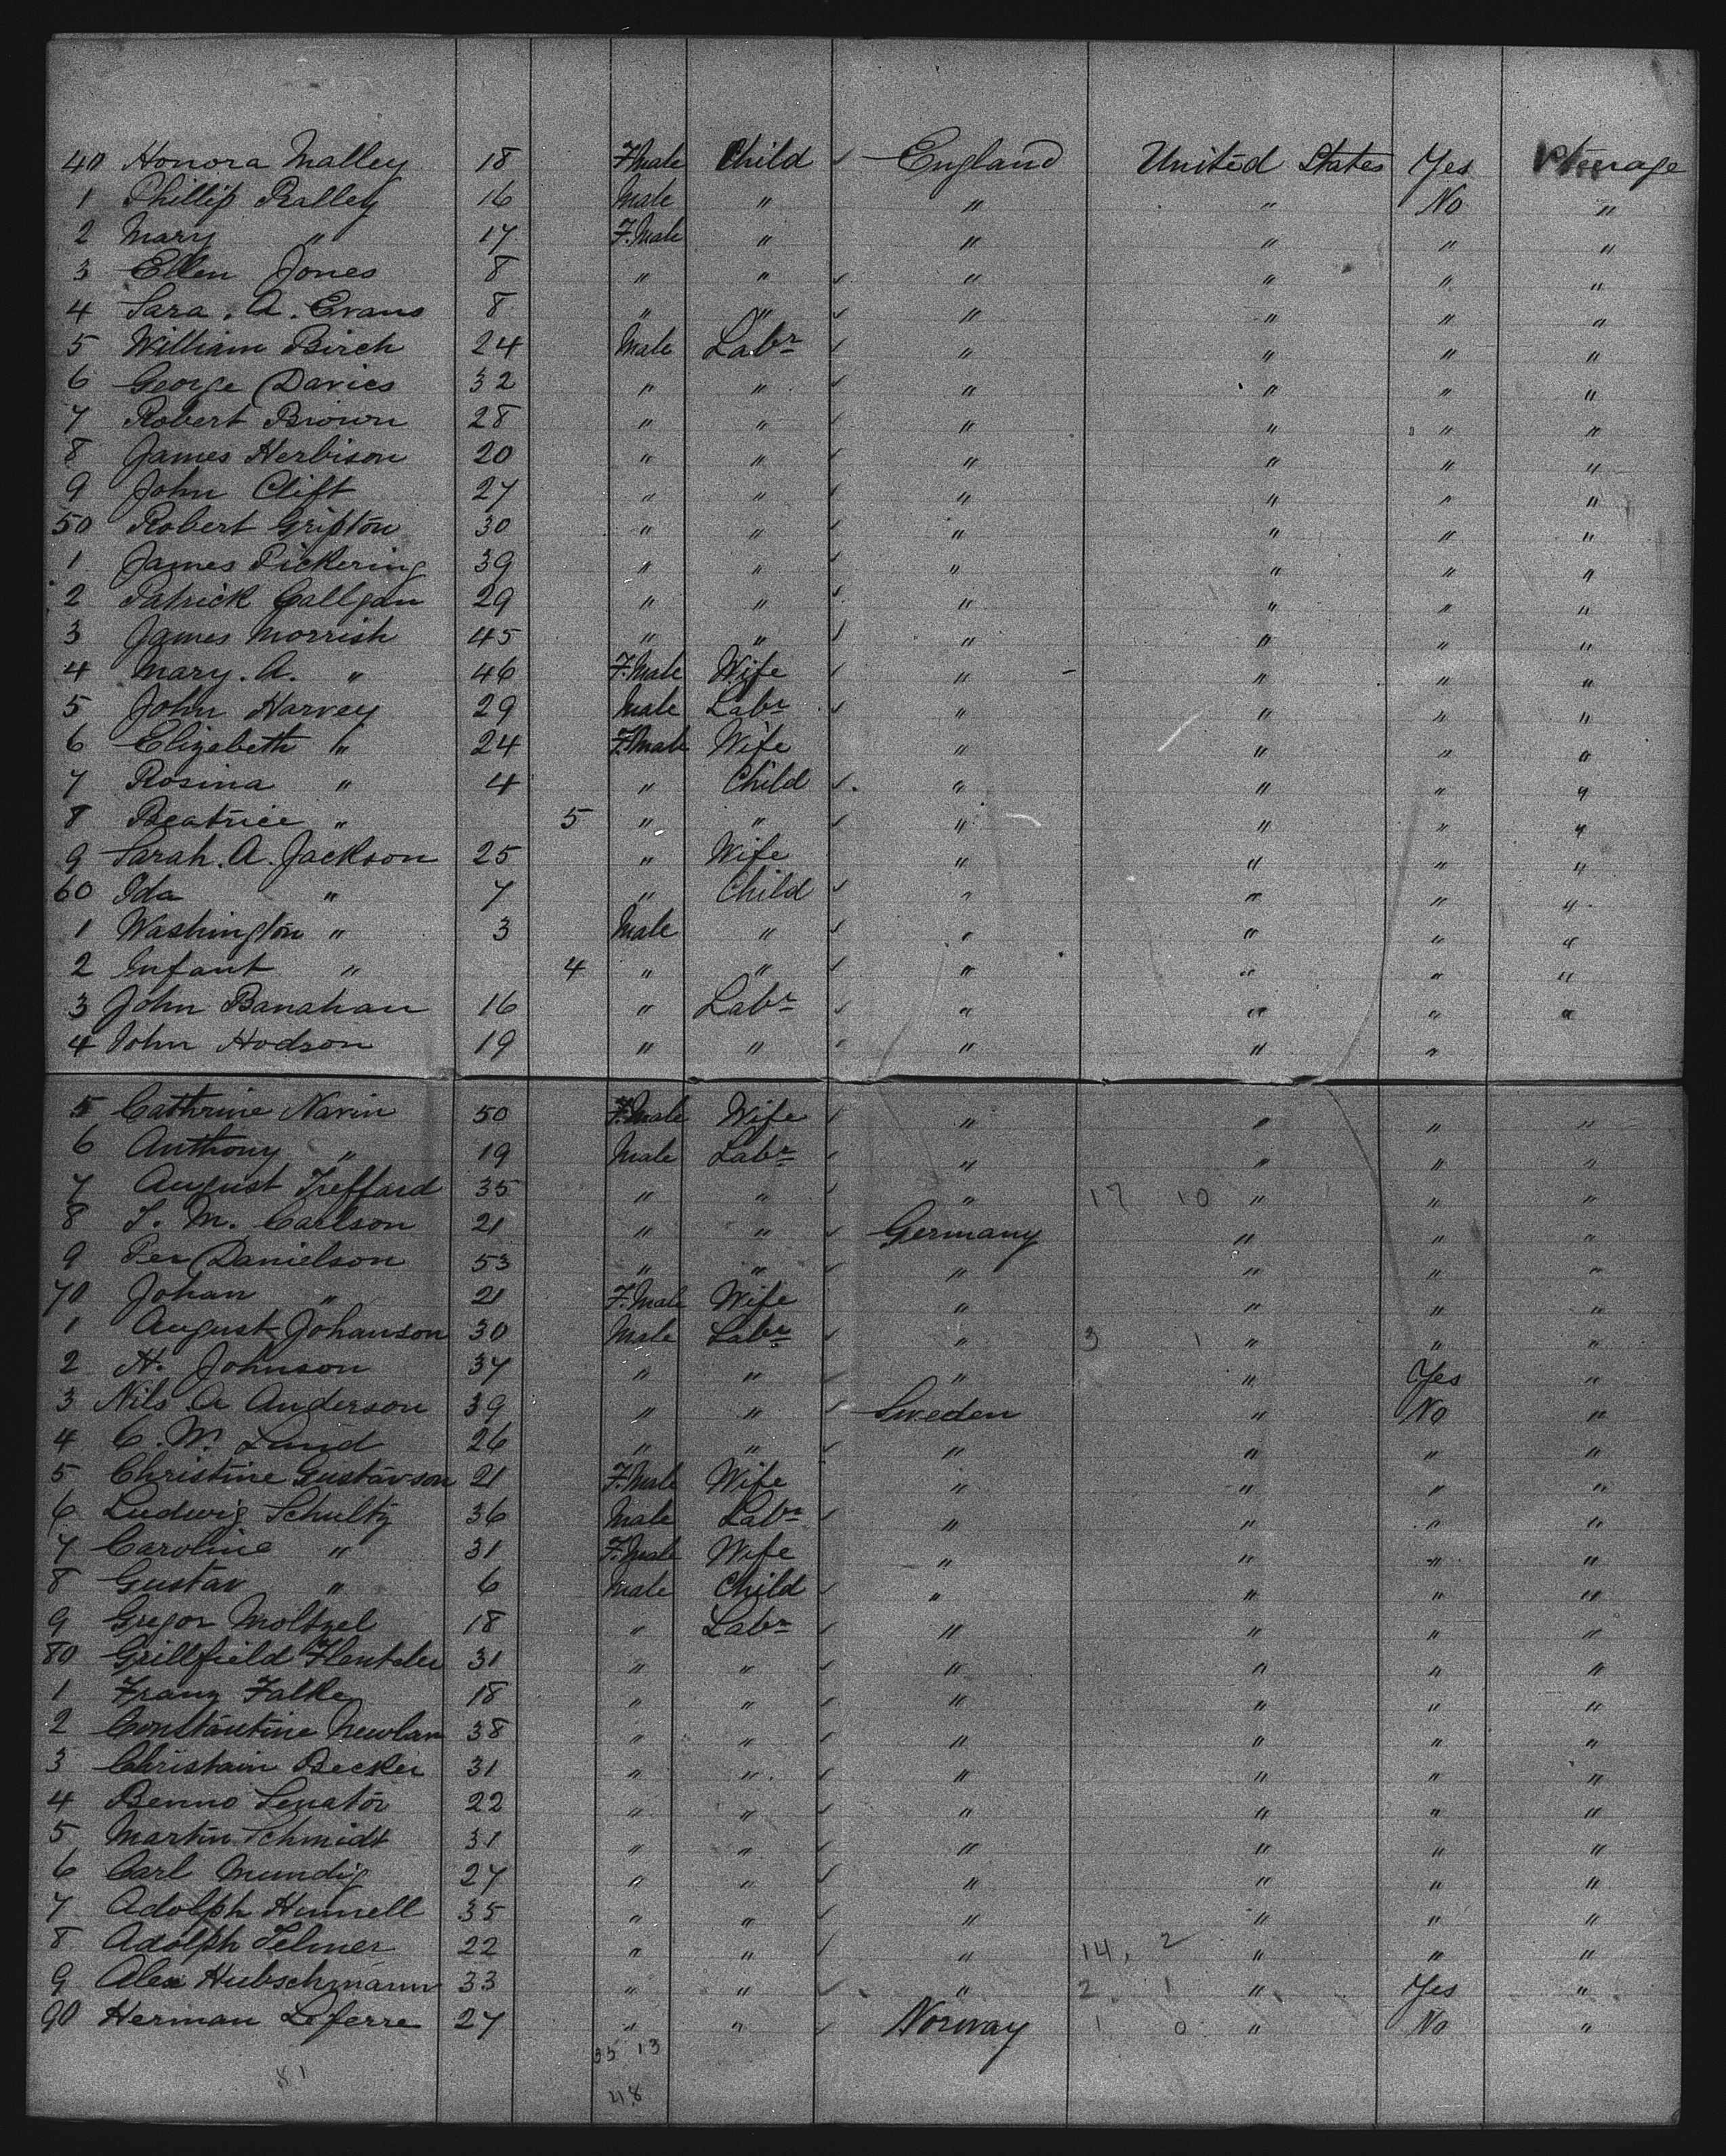 40 Honora Malley 18 F.Male Child ✓ England United States Yes Steerage
1 Phillip Ralley 16 Male " " " No "
2 Mary " 17 F.Male " " " " "
3 Ellen Jones 8 " " ✓ " " " "
4 Sara. A. Evans 8 " " ✓ " " " "
5 William Birch 24 Male Labr ✓ " " " "
6 George Davies 32 " " ✓ " " " "
7 Robert Brown 28 " " ✓ " " " "
8 James Herbison 20 " " ✓ " " " "
9 John Clift 27 " " ✓ " " " "
50 Robert Gripton 30 " " ✓ " " " "
1 James Pickering 39 " " ✓ " " " "
2 Patrick Callgan 29 " " ✓ " " " "
3 James Morrish 45 " " ✓ " " " "
4 Mary. A. " 46 F.Male Wife ✓ " " " "
5 John Harvey 29 Male Labr ✓ " " " "
6 Elizabeth " 24 F.Male Wife " " " "
7 Rosina " 4 " Child ✓ " " " "
8 Beatrice " 5 " " ✓ " " " "
9 Sarah. A. Jackson 25 " Wife " " " "
60 Ida " 7 " Child ✓ " " " "
1 Washington " 3 Male " ✓ " " " "
2 Infant " 4 " " ✓ " " " "
3 John Banahan 16 " Labr ✓ " " " "
4 John Hodson 19 " " " " "
5 Cathrine Navin 50 F.Male Wife ✓ " " " "
6 Anthony " 19 Male Labr ✓ " " " "
7 August Treffard 35 " " ✓ " 17 10 " " "
8 M. Carlson 21 " " ✓ Germany " " "
9 Per Danielson 53 " " ✓ " " " "
70 Johan " 21 F.Male Wife " " " "
1 August Johanson 30 Male Labr ✓ " 3 1 " " "
2 H. Johnson 37 " " ✓ " " Yes "
3 Nils A Anderson 39 " " ✓ Sweden " No "
4 C. W. Lund 26 " " ✓ " " " "
5 Christine Gustavson 21 F.Male Wife " " " "
6 Ludwig Schultz 36 Male Labr ✓ " " " "
7 Caroline " 31 F.Male Wife " " " "
8 Gustav " 6 Male Child ✓ " " " "
9 Gregor Moltzel 18 " Labr ✓ " " " "
80 Grillfield 31 " " ✓ " " " "
1 Franz Falke 18 " " ✓ " " " "
2 Constantine Newlan 38 " " ✓ " " " "
3 Christain Becker 31 " " ✓ " " " "
4 Benno Senator 22 " " ✓ " " " "
5 Martin Schmidt 31 " " ✓ " " " "
6 Carl Mundig 27 " " ✓ " " " "
7 Adolph Hunnell 35 " " ✓ " " " "
8 Adolph Telmer 22 " " ✓ " 14. 2 " " "
9 Alex Hubschmann 33 " " ✓ " 2 1 " Yes "
90 Herman Leferre 27 " " ✓ Norway 1 0 " No "
35 13
81